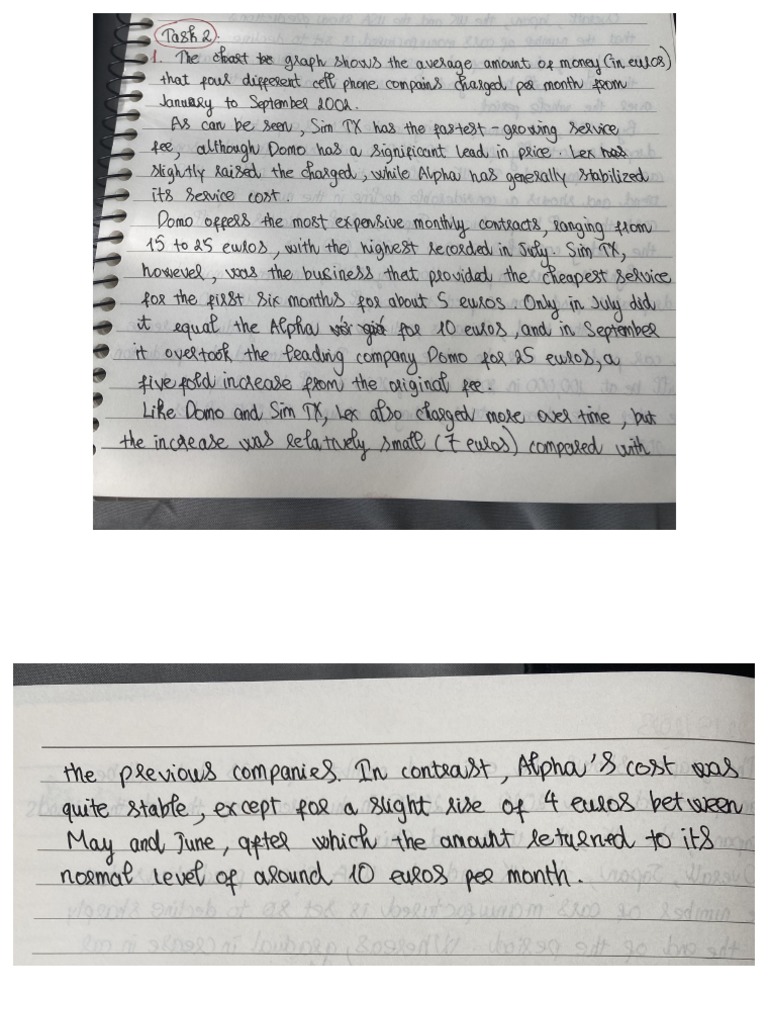 Task 2:
1. The chart be graph shows the average amount of money (in euros)
that four different cell phone compains charged per month from
January to September 2002.
As can be seen, Sim TX has the fastest-growing service
fee, although Domo has a significant lead in price. Lex has
slightly raised the charged, while Alpha has generally stabilized
its service cost.
Domo offers the most expensive monthly contracts, ranging from
15 to 25 euros, with the highest recorded in July. Sim TX,
however, was the business that provided the cheapest service
for the first six months for about 5 euros. Only in July did
it equal the Alpha với giá for 10 euros, and in September
it overtook the leading company Domo for 25 euros, a
five fold increase from the original fee.
Like Domo and Sim TX, Lex also charged more over time, but
the increase was relatively small (7 euros) compared with
the previous companies. In contrast, Alpha's cost was
quite stable, except for a slight rise of 4 euros between
May and June, after which the amount returned to its
normal level of around 10 euros per month.